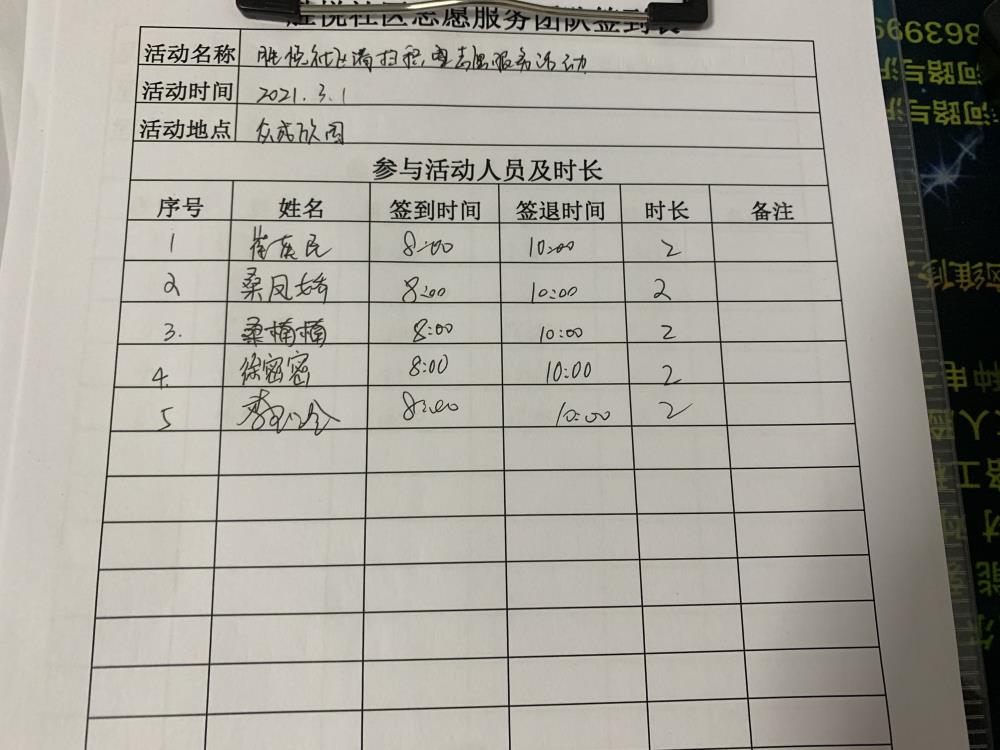 胜悦社区志愿服务团队签到表
活动名称 胜悦社区清扫积雪志愿服务活动
活动时间 2021.3.1
活动地点 众成欣园
参与活动人员及时长
序号 姓名 签到时间 签退时间 时长 备注
1 民 8:00 10:00 2
2 桑凤娇 8:00 10:00 2
3. 桑楠楠 8:00 10:00 2
4. 徐密密 8:00 10:00 2
5 李 8:00 10:00 2
863999
河路与
河路与
维修